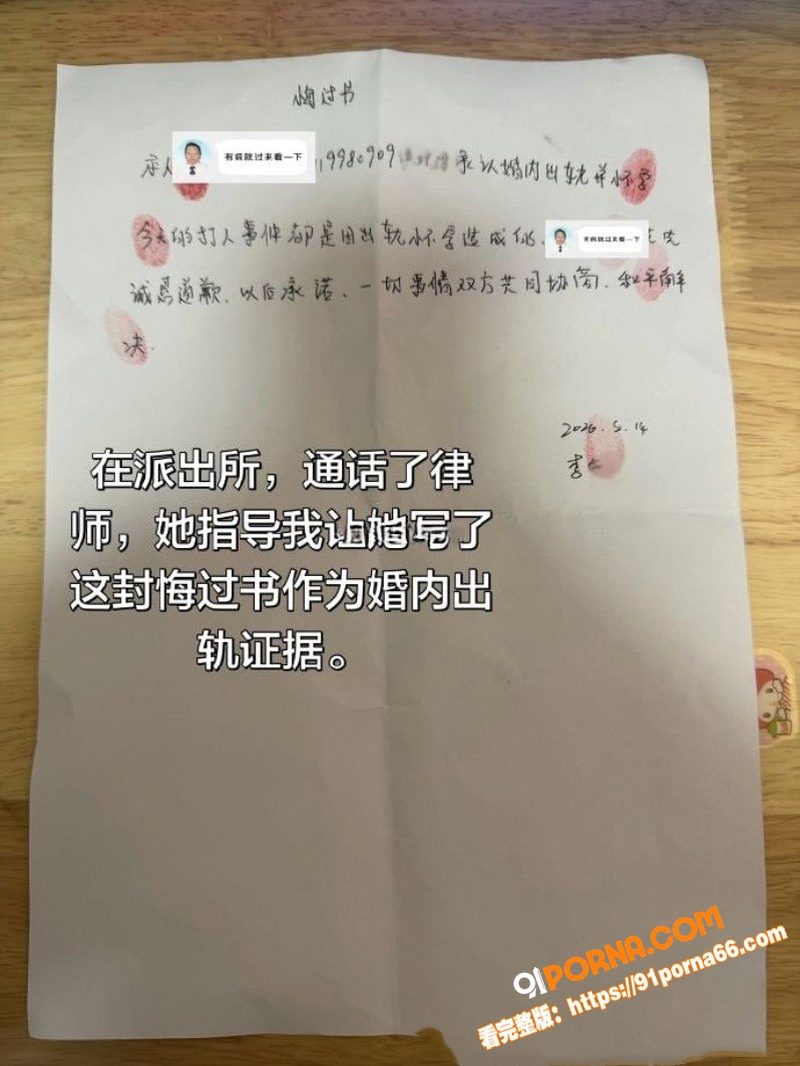 悔过书
本人
有病就过来看一下
19980909
承认婚内出轨并怀孕
今天的打人事件都是因出轨怀孕造成的、
有病就过来看一下
先
诚恳道歉、以后承诺、一切事情双方共同协商、和平解
决.
2026.5.14
李
在派出所，通话了律
师，她指导我让她写了
这封悔过书作为婚内出
轨证据。
91PORNA.COM
看完整版：https://91porna66.com